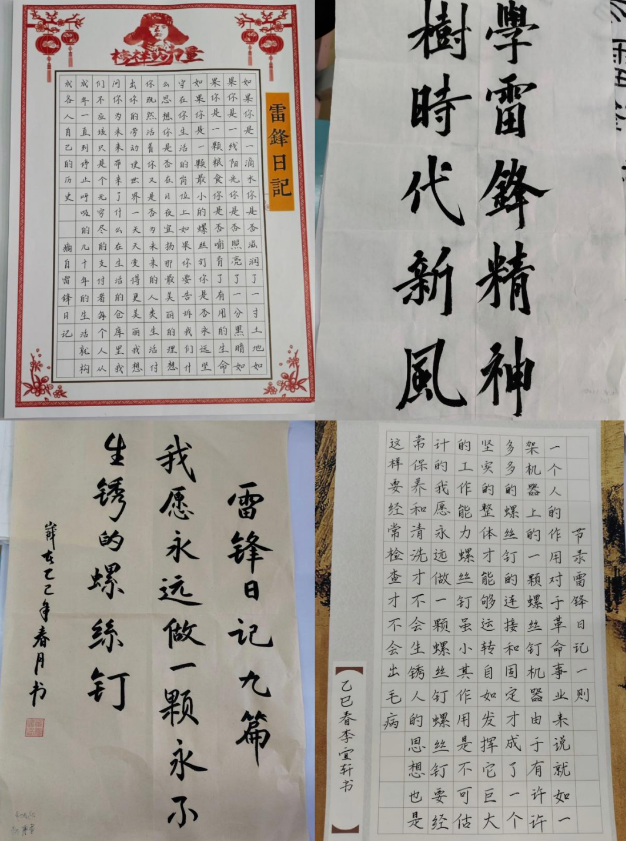 榜样的力量
雷鋒日記
如果你是一滴水你是否滋润了一寸土地如
果你是一线阳光你是否照亮了一分黑暗如
果你是一颗粮食你是否哺育了有用的生命
如果你是一颗最小的螺丝钉你是否永远坚
守在你生活的岗位上如果你要告诉我们什
么思想你是否在日夜宣扬那最美丽的理想
你既然活着你又是否为未来的人类生活付
出你的劳动使世界一天天变得更美丽我想
问你为未来带来了什么在生活的仓库里我
们不应该只是个无穷尽的支付者每个人从
成年一直到停止呼吸的几十年的生活就构
成各人自己的历史 摘自雷锋日记
學雷鋒精神
樹時代新風
雷锋日记九篇
我愿永远做一颗永不
生锈的螺絲钉
歲在乙巳年春月书
节录雷锋日记一则
一个人的作用对于革命事业来说就如一
架机器上的一颗螺丝钉机器由于有许许
多多的螺丝钉的连接和固定才成了一个
坚实的整体才能够运转自如发挥它巨大
的工作能力螺丝钉虽小其作用是不可估
计的我愿永远做一颗螺丝钉螺丝钉要经
常保养和清洗才不会生锈人的思想也是
这样要经常检查才不会出毛病
乙巳春李宣轩书